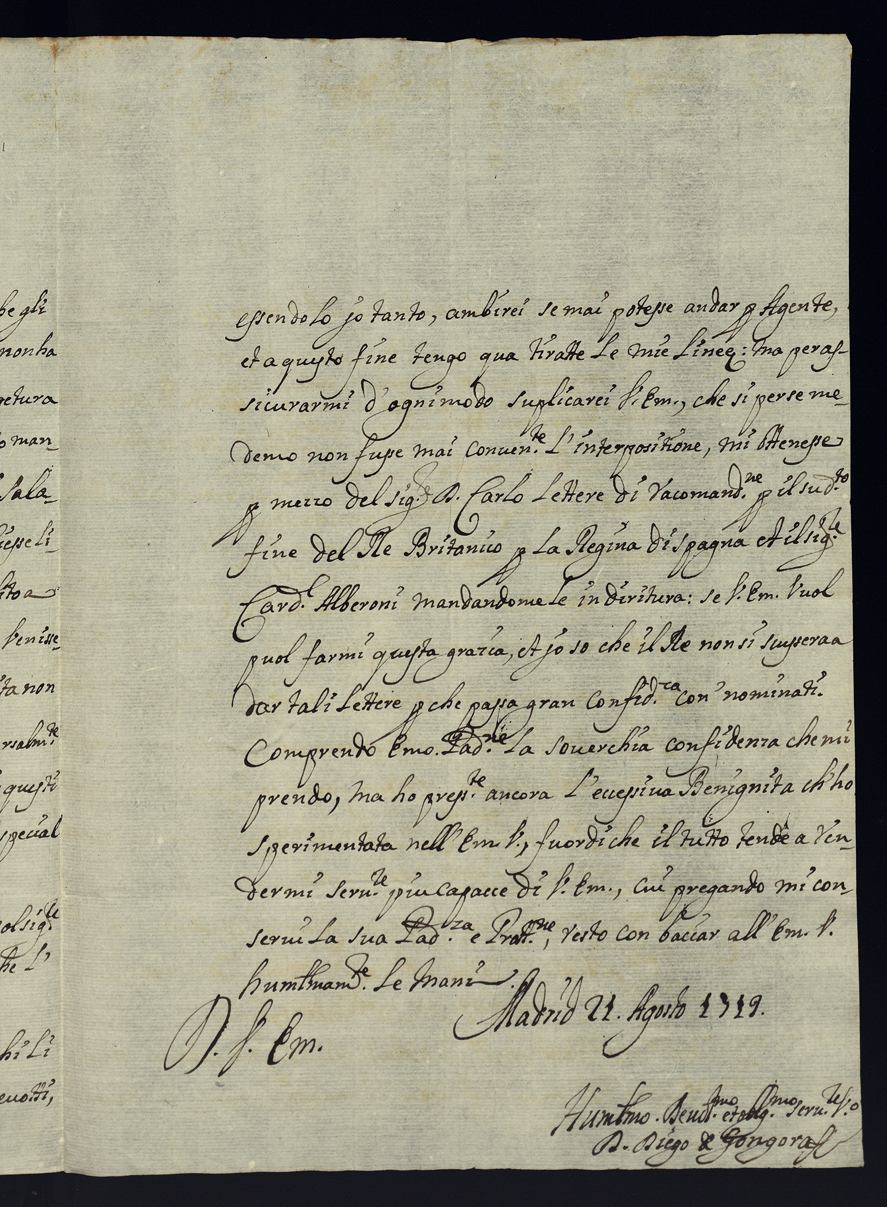 he gli
non ha
getura
o man-
sala-
iesse li-
ito a
Venisse-
ta non
rsalm.te
i questi
special
ol sig.re
he l'
hi li
evotti,
essendolo jo tanto, ambirei se mai potesse andar p Agente,
et a questo fine tengo qua tiratte le mie linee: ma per as-
sicurarmi d'ogni modo suplicarei V. Em., che si per se me-
demo non fusse mai conven.te l'interpositione, mi ottenesse
p mezzo del sig.r D. Carlo lettere di racomand.ne p il sud.to
fine del Re Britanico p la Regina di spagna et il sig.re
Card.l Alberoni mandandomele in diritura: se V. Em. Vuol
puol farmi questa grazia, et jo so che il Re non si scusera a
dar tali lettere p che passa gran confid.za con i nominati.
Comprendo Emo. Pad.ne la soverchia confidenza che mi
prendo, ma ho press.te ancora l'ecessiva Benignita ch'ho
sperimentata nell'Em. V., fuor di che il tutto tende a ren-
dermi serv.re piu capacce di V. Em., cui pregando mi con-
servi la sua Pad.za e Prott.ne, resto con baciar all'Em. V.
humilmam.te le mani.
Madrid 21. Agosto 1719.
D. V. Em.
Humilmo. Devot.mo et oblig.mo serv.re V.o
D. Diego de Gongora